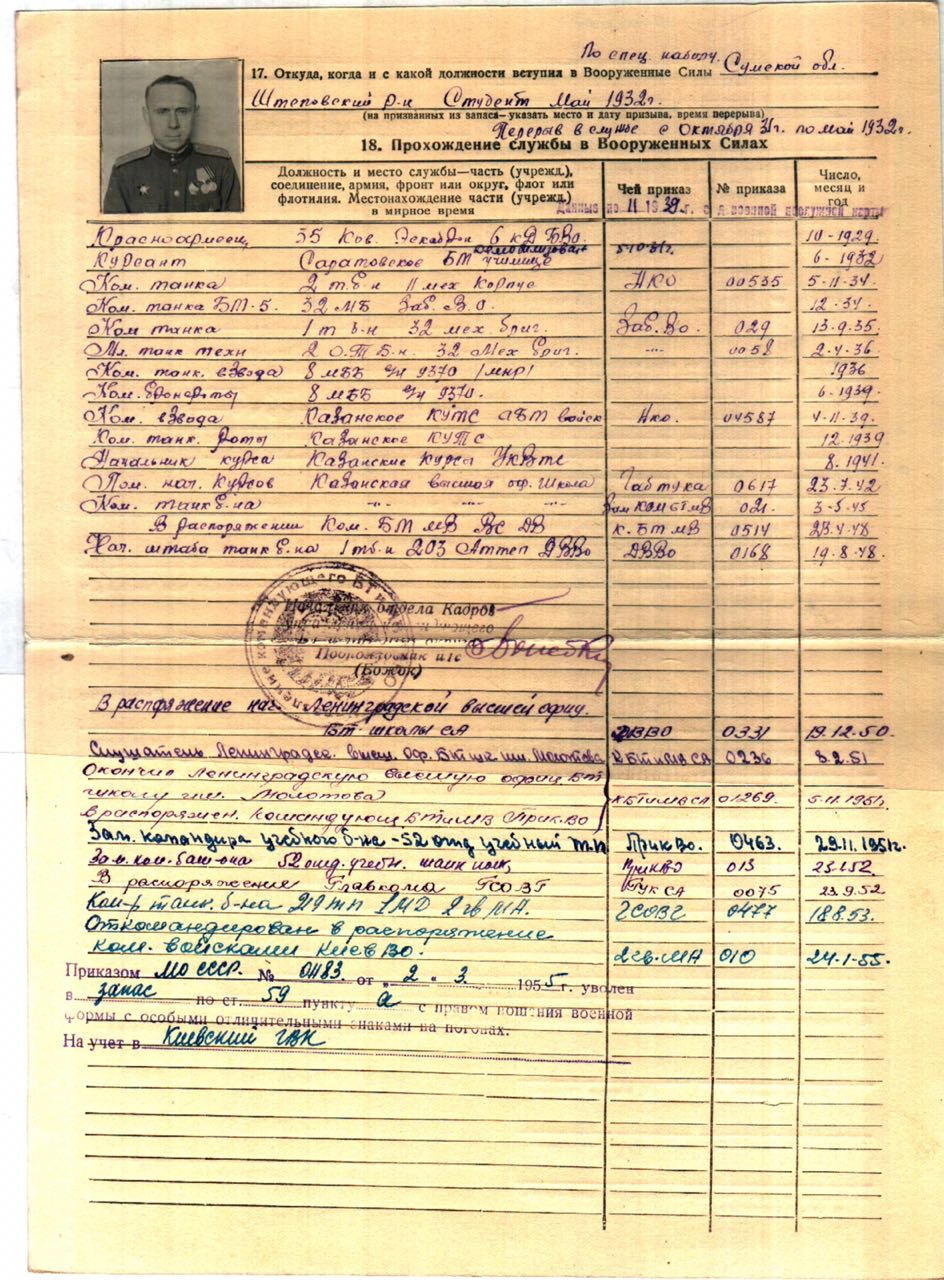 По спец. набору.
17. Откуда, когда и с какой должности вступил в Вооруженные Силы Сумской обл.
Штеповский р-н Студент Май 1932 г.
(на призванных из запаса—указать место и дату призыва, время перерыва)
Перерыв в службе с Октября 31 г. по май 1932 г.
18. Прохождение службы в Вооруженных Силах
Должность и место службы—часть (учрежд.), соединение, армия, фронт или округ, флот или флотилия. Местонахождение части (учрежд.) в мирное время
Чей приказ
№ приказа
Число, месяц и год
Данные по 11 1939 г. с
Красноармеец 35 Кав. 6 КД БВО 10-1929
демобилизован 5-10-31г.
Курсант Саратовское БМ училище 6-1932
Ком. танка 2 т.б-н 11 мех Корпус НКО 00535 5-11-34.
Ком. танка БТ-5. 32 МБ Заб. В.О. 12-34.
Ком танка 1 т б-н 32 мех. бриг. Заб.Во. 029 13-9.35.
Мл. танк техн 2 О.Т.Б-н. 32 Мех бриг. -"- 0058 2-4-36.
Ком. танк. взвода 8 МББ в/ч 9370 /мнр/ 1936
Ком. бронероты 8 МББ в/ч 9370. 6-1939.
Ком. взвода Казанское КУТС АБТ войск НКО. 04587 4-11-39.
Ком. танк. роты Казанское КУТС 12.1939
Начальник курса Казанские Курсы УКВТС 8.1941.
Пом. нач. Курсов Казанская высшая оф. Школа 0617 23.7.42
Ком. танк б-на -"- -"- Зам КОМ БТ МВ 021. 3-5-45
В распоряжении Ком. БТ МВ ВС ДВ К. БТ МВ 0514 23.4-48
Нач. штаба танк б-на 1 тб-н 203 ДВВО ДВВО 0168 19.8-48.
Начальник отдела Кадров
Подполковник и/с
(Божок)
В распоряжение нач. Ленинградской высшей офиц.
БТ школы СА ДВВО 0331 19.12-50.
Слушатель Ленинградск. высш. Оф. БТ шк. им. Молотова К БТ и МВ СА 0236 8.2.51
Окончил Ленинградскую высшую офиц БТ
школу им. Молотова К БТ и МВ СА 01269. 5.11.1951г.
в распоряжен. командующ БТ и МВ ПрикВО
Зам. командира учебного б-на -52 отд учебный т.п. ПрикВо. 0463. 29.11.1951г.
Зам. ком. бат-она 52 отд. учебн. танк полк, ПрикВО 013 23.1.52
В распоряжение Главкома ГСОВГ ГУК СА 0075 23.9.52
Ком-р танк. б-на 2 гв МА. ГСОВГ 0477 18.8.53.
Откомандирован в распоряжение
Ком. войсками КиевВО. 2 гв. МА 010 24-1-55.
Приказом МО СССР. № 01183 от „ 2 " 3. 1955 г. уволен
в запас по ст. 59 пункту а с правом ношения военной
формы с особыми отличительными знаками на погонах.
На учет в Киевский ГВК